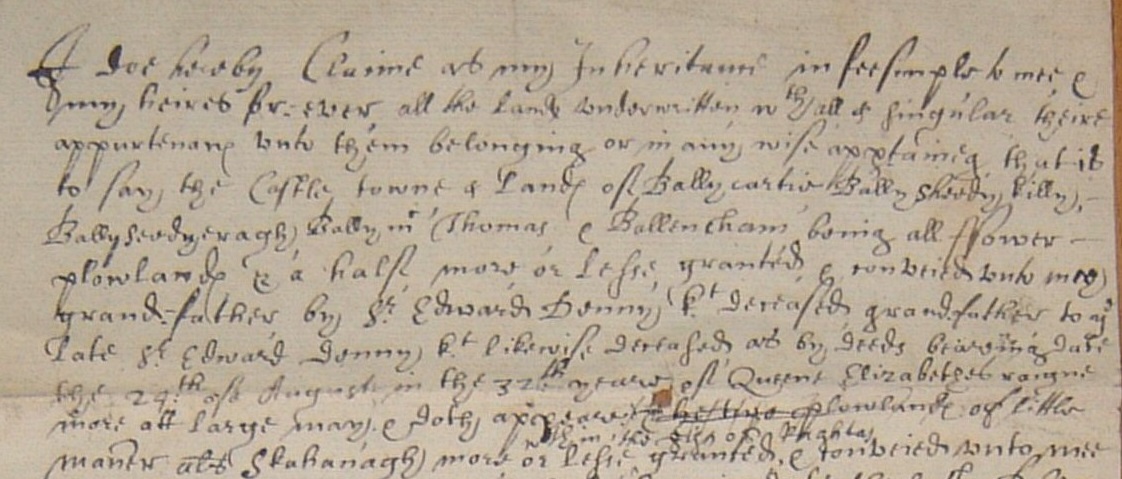 I doe hereby Claime as my Inheritance in feesimple to mee &
my heires for=ever all the lands underwritten wth all & singular theire
appurtenanc unto them belonging or in any wise apptaineg that is
to say the Castle towne & lands of Ballycartie Ballysheedykilly,
Ballyseedyeragh Ballymc Thomas & Ballencham being all ffower
plowlands & a half more or lesse granted & conveied unto mey
grand-father by Sr Edward Denny kt deceased grand-father to ye
late Sr Edward Denny kt likewise deceased as by deeds bearing date
the 29th of August in the 32th yeare of Queene Elizabethes raigne
more att large may & doth appeare plowlands of little
within the of
maner als Skahanagh more or lesse granted & conveied unto mee